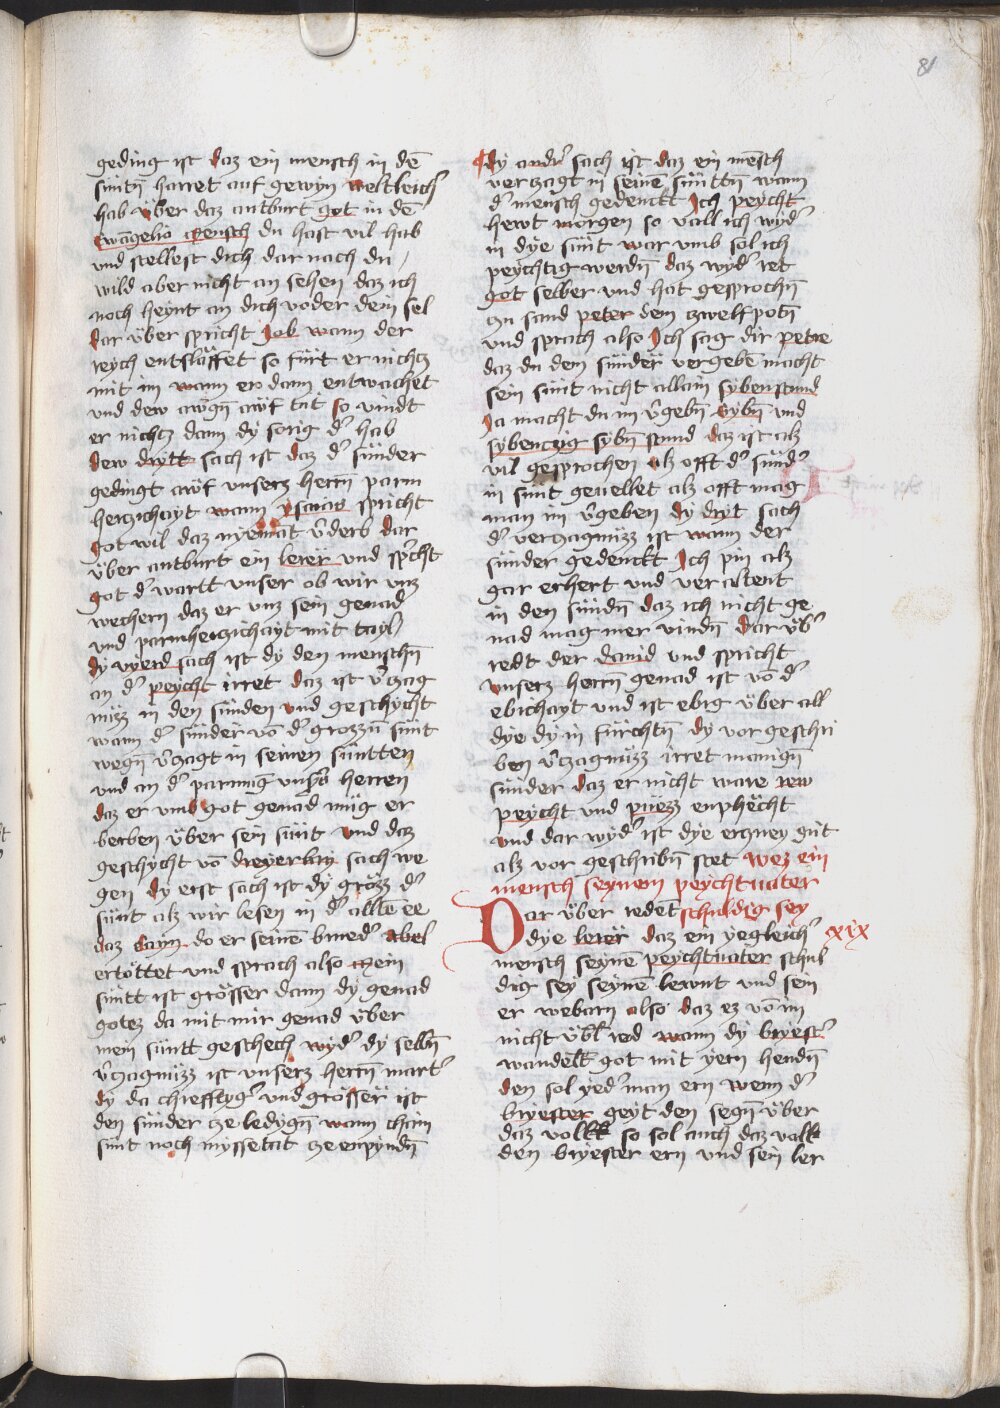 81
geding ist daz ein mensch in dē
sūntn̄ harret auf gewyn weltleich̛
hab über daz antburt got in dē
ewāgelio mensch du hast vil hab
vnd stellest dich dar nach du
wild aber nicht an sehen daz ich
noch heynt an dich voder dein sel
dar über spricht Job wann der
reych entslaffet so fürt er nichtz
mit im wann er dann entwachet
vnd dew awgn̄ awf tut so vindt
er nichtz dann dy sorig d̛ hab
dew drytt sach ist daz d̛ sünder
gedingt awf vnsers herrn̄ parm
herczichayt wann ysaias spricht
got wil daz nyemat v̛derb dar
über antburt ein lerer vnd sp̄cht
got d̛ wartt vnser ob wir vns
wechern daz er vns sein genad
vnd parmherczichayt mit tayl
dy vyerd sach ist dy den menschn̄
an d̛ peycht irret daz ist v̛czag
nüzz in den sünden vnd geschycht
wann d̛ sünder vō d̛ grozzn̄ sünt
wegn̄ v̛czagt in seinen süntten
vnd an d̛ parmūg vnsers herren
daz er vmb got genad müg er
berben über sein sünt vnd daz
geschycht vō dreyerlay sach we
gen dy erst sach ist dy grözz d̛
sünt alz wir lesen in d̛ alltē ee
daz Cayn do er seinē brued̛ abel
ertöttet vnd sprach also mein
süntt ist grösser dann dy genad
gotez da mit mir genad über
mein süntt geschech wyd̛ dy selbn̄
v̛czagnüzz ist vnsers herrn̄ mart̛
dy da chrefftyg̛ vnd grösser ist
den sünder ze ledygn̄ wann chain
sünt noch myssetat ze enpyndn̄
dy ander sach ist daz ein mēsch
verczagt in seinē sünttn̄ wann
d̛ mensch gedenckt Ich peycht
hewt morgen so vall ich wyd̛
in dye sünt war vmb sol ich
peychtig werdn̄ daz wyd̛ ret
got selber vnd hat gesprochn̄
zu sand peter dem zwelfpotn̄
vnd sprach also Ich sag dir petre
daz du dem sünder vergebē macht
sein sünt nicht allain sybenstund
Ja macht du im v̛gebn̄ sybn̄ vnd
sybenczig sybn̄ stund daz ist alz
vil gesprochen alz offt d̛ sünd̛
in sünt geuellet alz offt mag
man im v̛geben dy dryt sach
d̛ verczagnüzz ist wann der
sünder gedenckt Ich pin alz
gar erhert vnd veraltent
in den sündn̄ daz ich nicht ge
nad mag mer vindn̄ dar üb̛
redt der dauid vnd spricht
vnsers herrn̄ genad ist vō d̛
ebichayt vnd ist ebig über all
dye dy in fürchtn̄ dy vor geschri
ben v̛czagnüzz irret manign̄
sünder daz er nicht ware rew
peycht vnd püezz enphächt
vnd dar wyd̛ ist dye erczney gut
alz vor geschribn̄ stet wez ein
mensch seynem peychtuater
schuldig sey
Dar über redent
dye lerer daz ein yegleich̛
xix
mensch seynē peychtuater schul
dig sey seyne lewnt vnd sein
er webarn also daz ez vō im
nicht übl red wann dy bryest̛
wandelt got mit yern hendn̄
den sol yed̛ man ern wenn d̛
bryester geyt den segn̄ über
daz volkk so sol auch daz volk
den bryester ern vnd sein ler